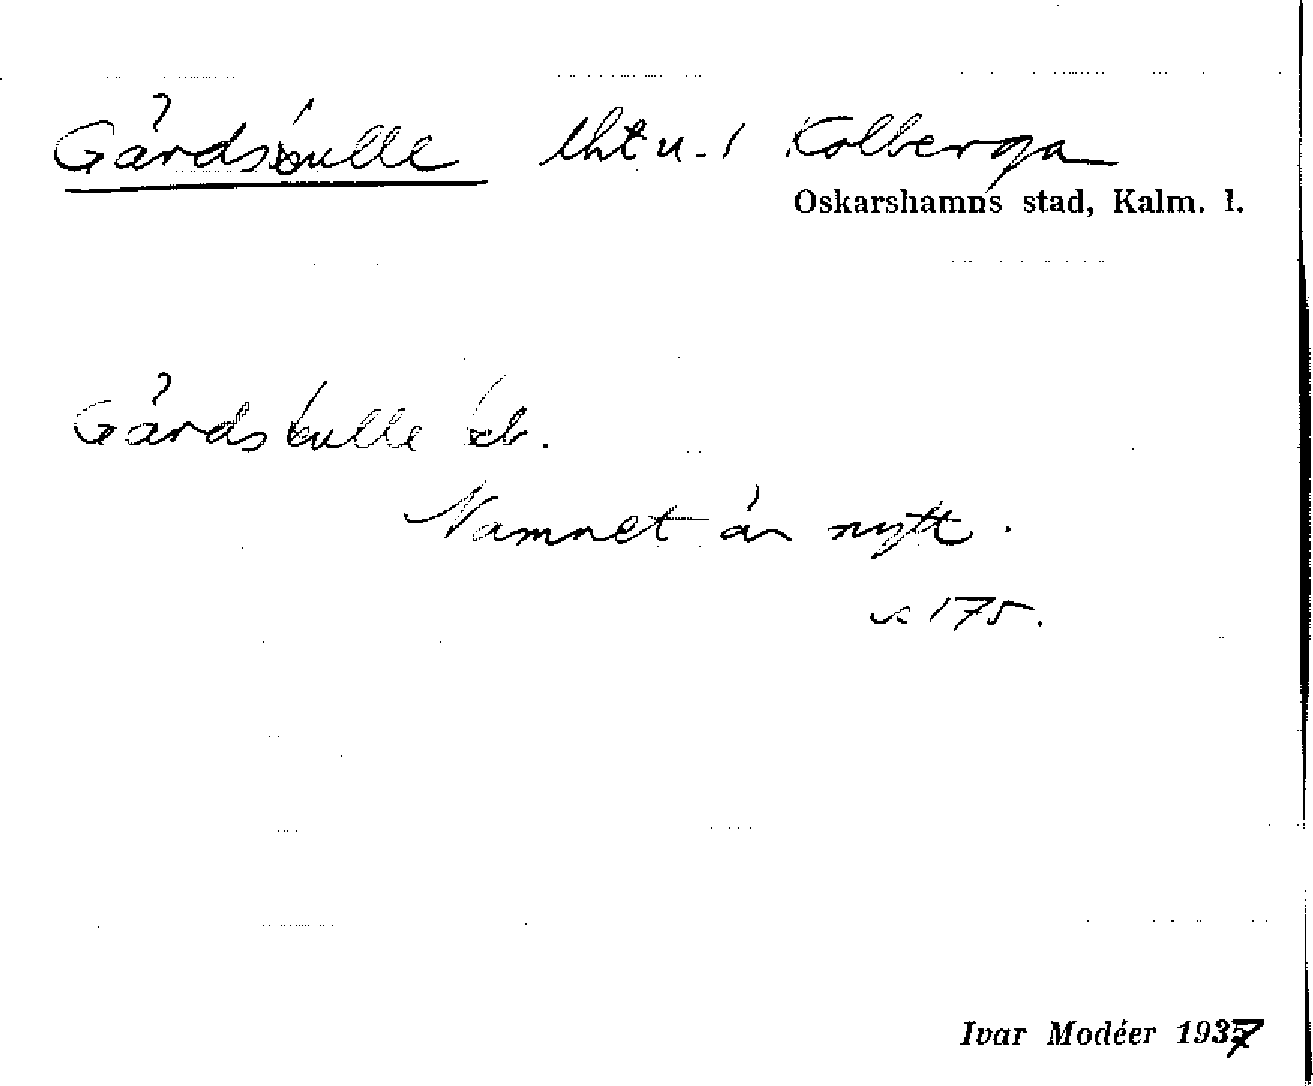 Gårdskulle lht u. / Kolberga
Oskarshamns stad, Kalm. l.
Gårdskulle eb.
Namnet är nytt.
175.
Ivar Modéer 1937